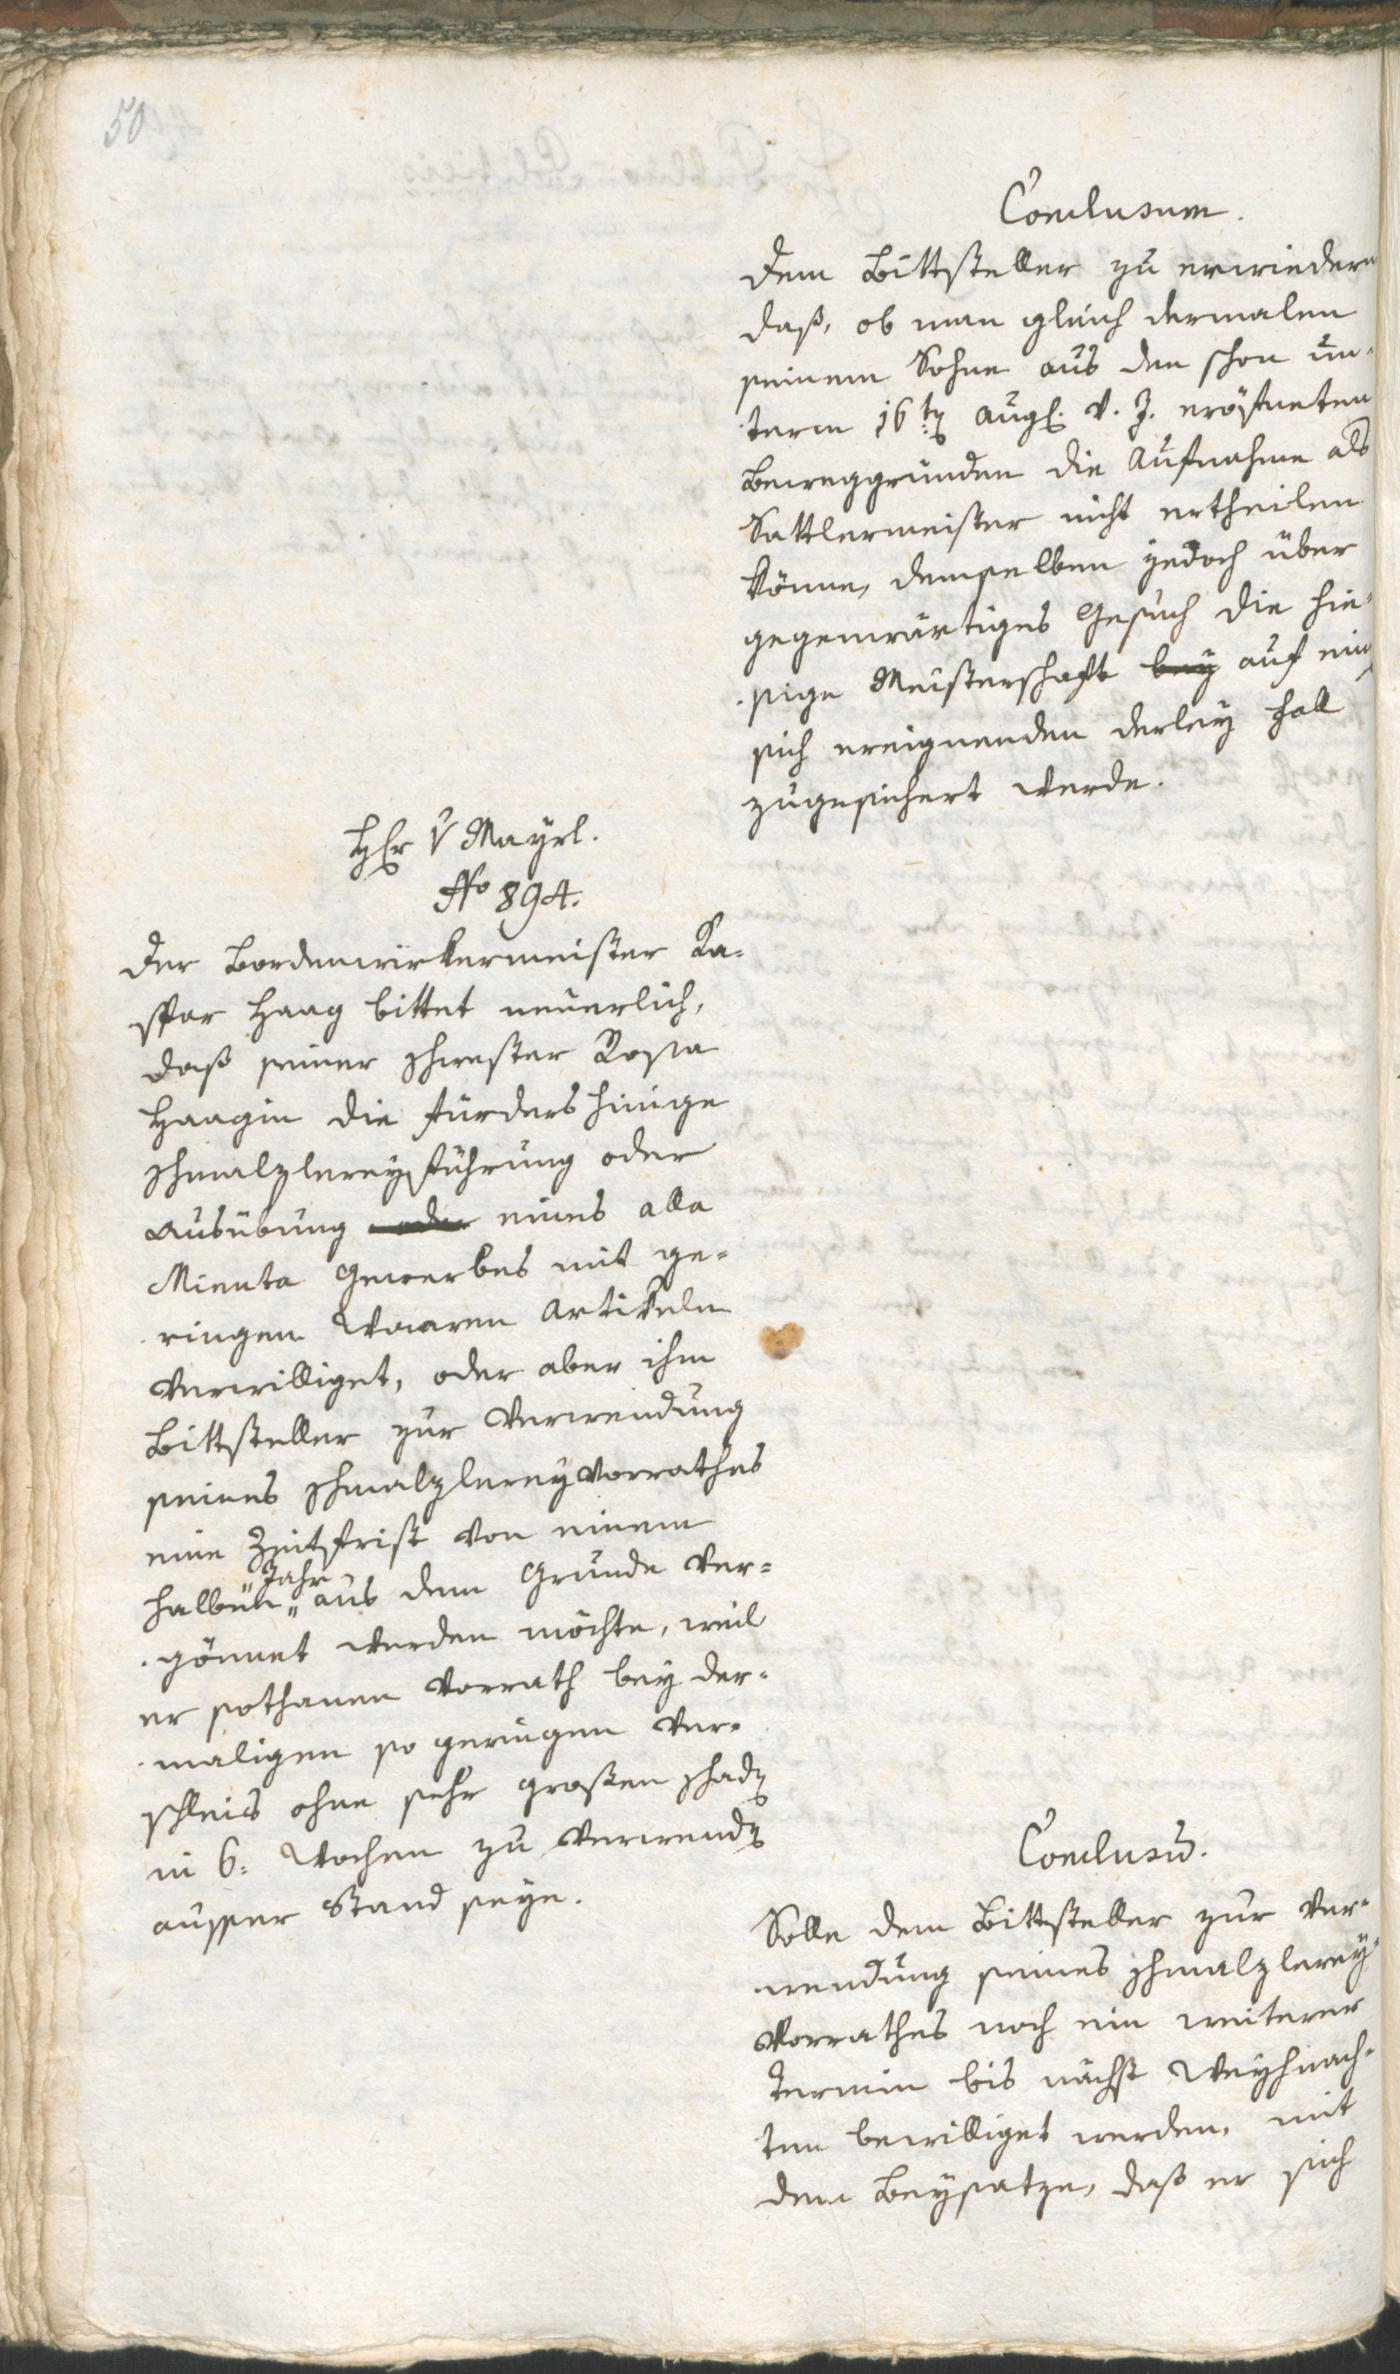 50
Conclusum.
Dem Bittsteller zu erwiedern
daß, ob man gleich dermalen
seinem Sohne aus den schon un-
term 16ten Aug. v. J. eröfneten
Beweggründen die Aufnahme als
Sattlermeister nicht ertheilen
könne, demselben jedoch über
gegenwärtiges Gesuch die hie-
sige Meisterschaft bey auf ein
sich ereignenden derley Fall
zugesichert werde.
Hr v Mayrl.
No 894.
Der Bordenwirkermeister Ka-
spar Haag bittet neuerlich,
daß seiner Schwester Rosa
Haagin die fürdershinige
Schmalzlereysführung oder
Ausübung oder eines alla
Minuta Gewerbes mit ge-
ringen Waaren Artikeln
verwilliget, oder aber ihm
Bittsteller zur Verwendung
seines Schmalzlereyvorrathes
eine Zeitsfrist von einem
halben „Jahr„ aus dem Grunde ver-
gönnet werden möchte, weil
er sothanen Vorrath bey der-
maligen so geringen Ver-
schleis ohne sehr großen Schaden
in 6. Wochen zu verwenden
ausser Stand seye.
Conclusum.
Solle dem Bittsteller zur Ver-
wendung seines Schmalzlerey-
vorrathes noch ein weiterer
Termin bis nächst Weyhnach-
ten bewilliget werden, mit
dem Beysatze, daß er sich